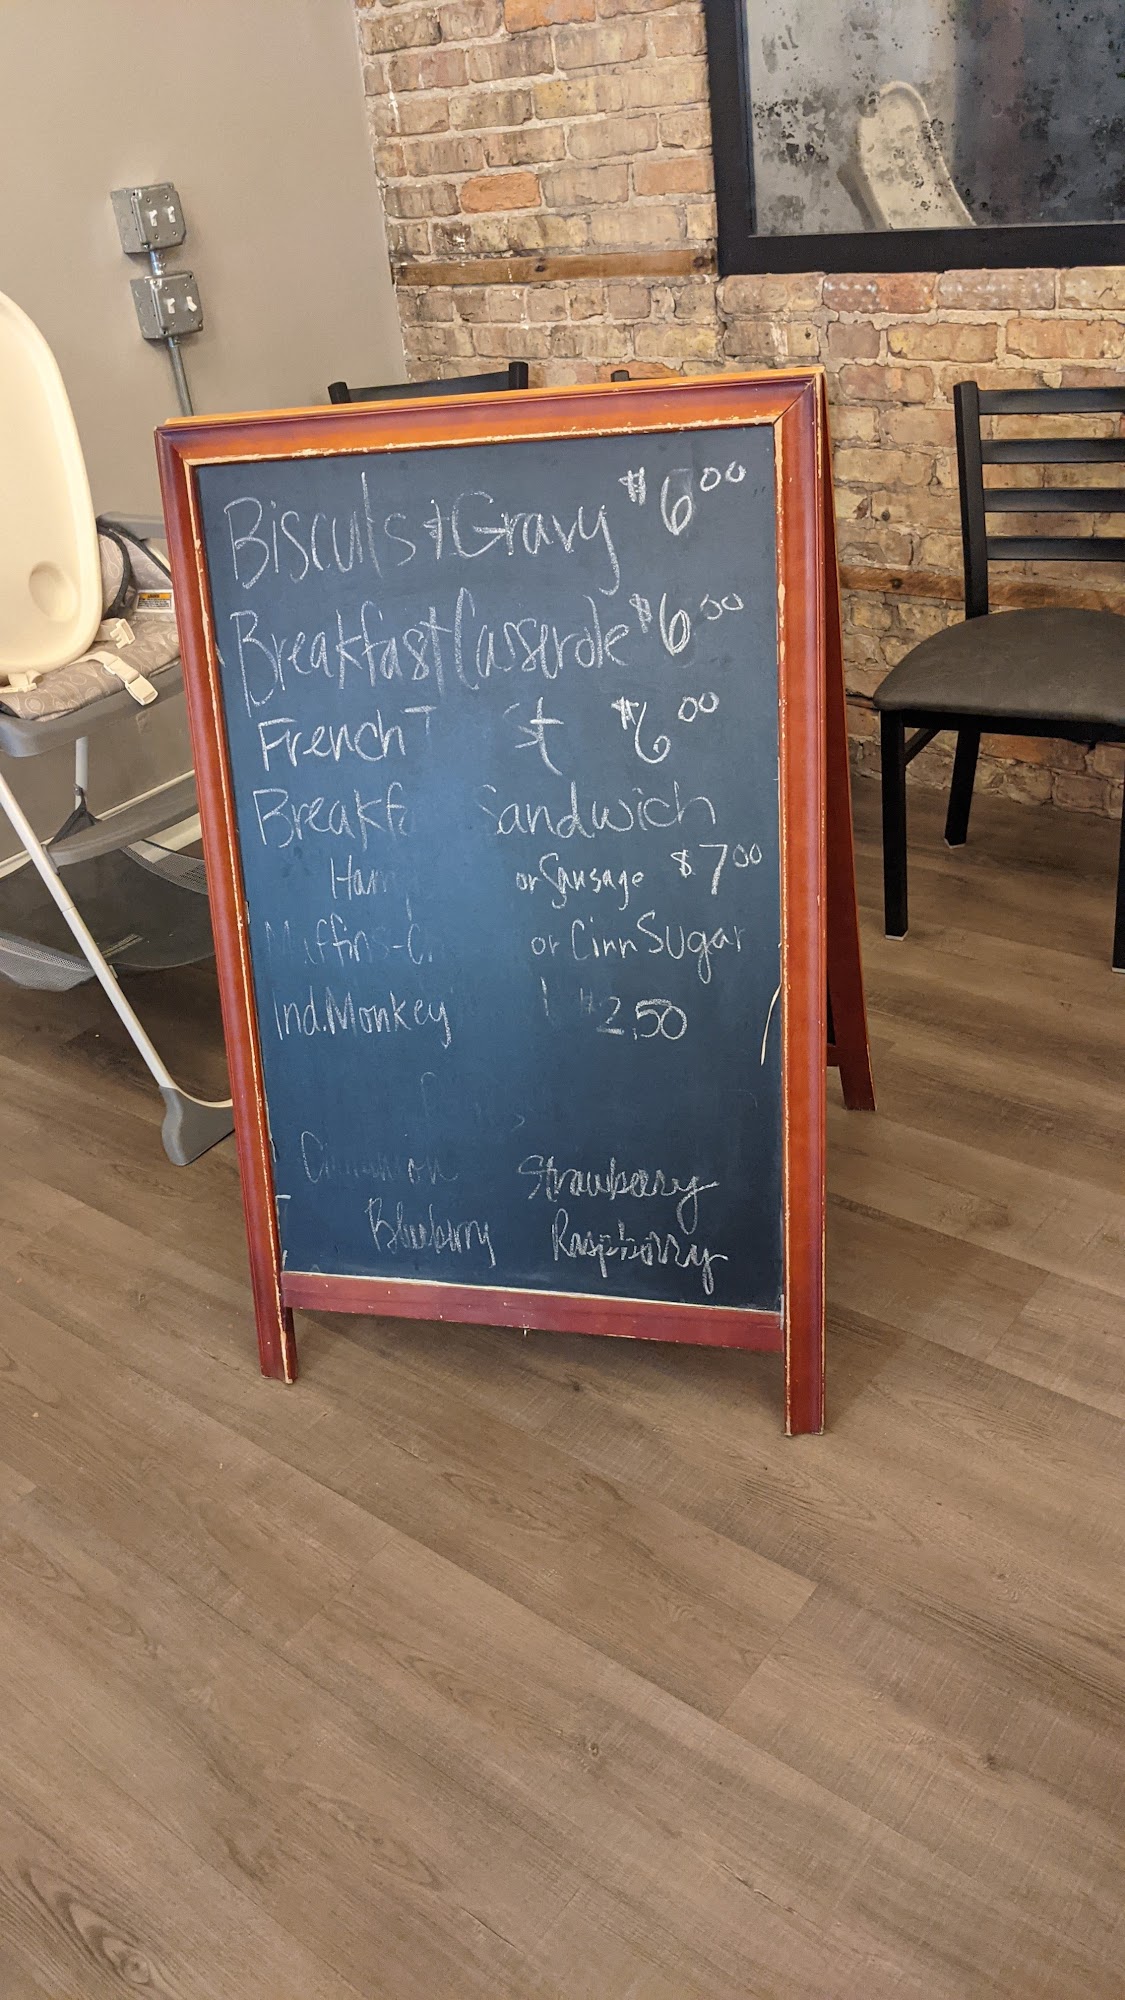 Biscuits & Gravy $6.00
Breakfast Casserole $6.00
French T st $6.00
Breakfa Sandwich
Ham or Sausage $7.00
Muffins - or Cinn Sugar
Ind. Monkey $2.50
Cinnamon Strawberry
Blueberry Raspberry